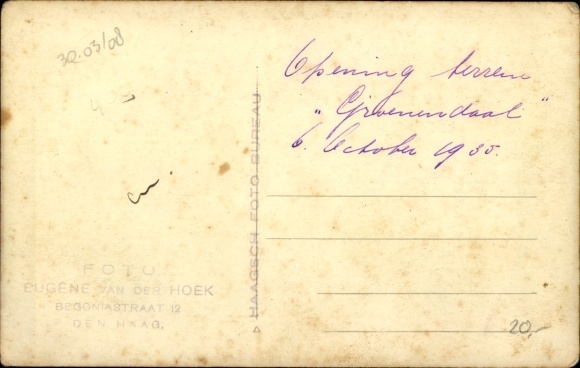 30.03/08
Opening terrein
"Groenendaal"
6. October 1935.
HAAGSCH FOTO-BUREAU
FOTO
EUGÈNE VAN DER HOEK
BEGONIASTRAAT 12
DEN HAAG.
20,-